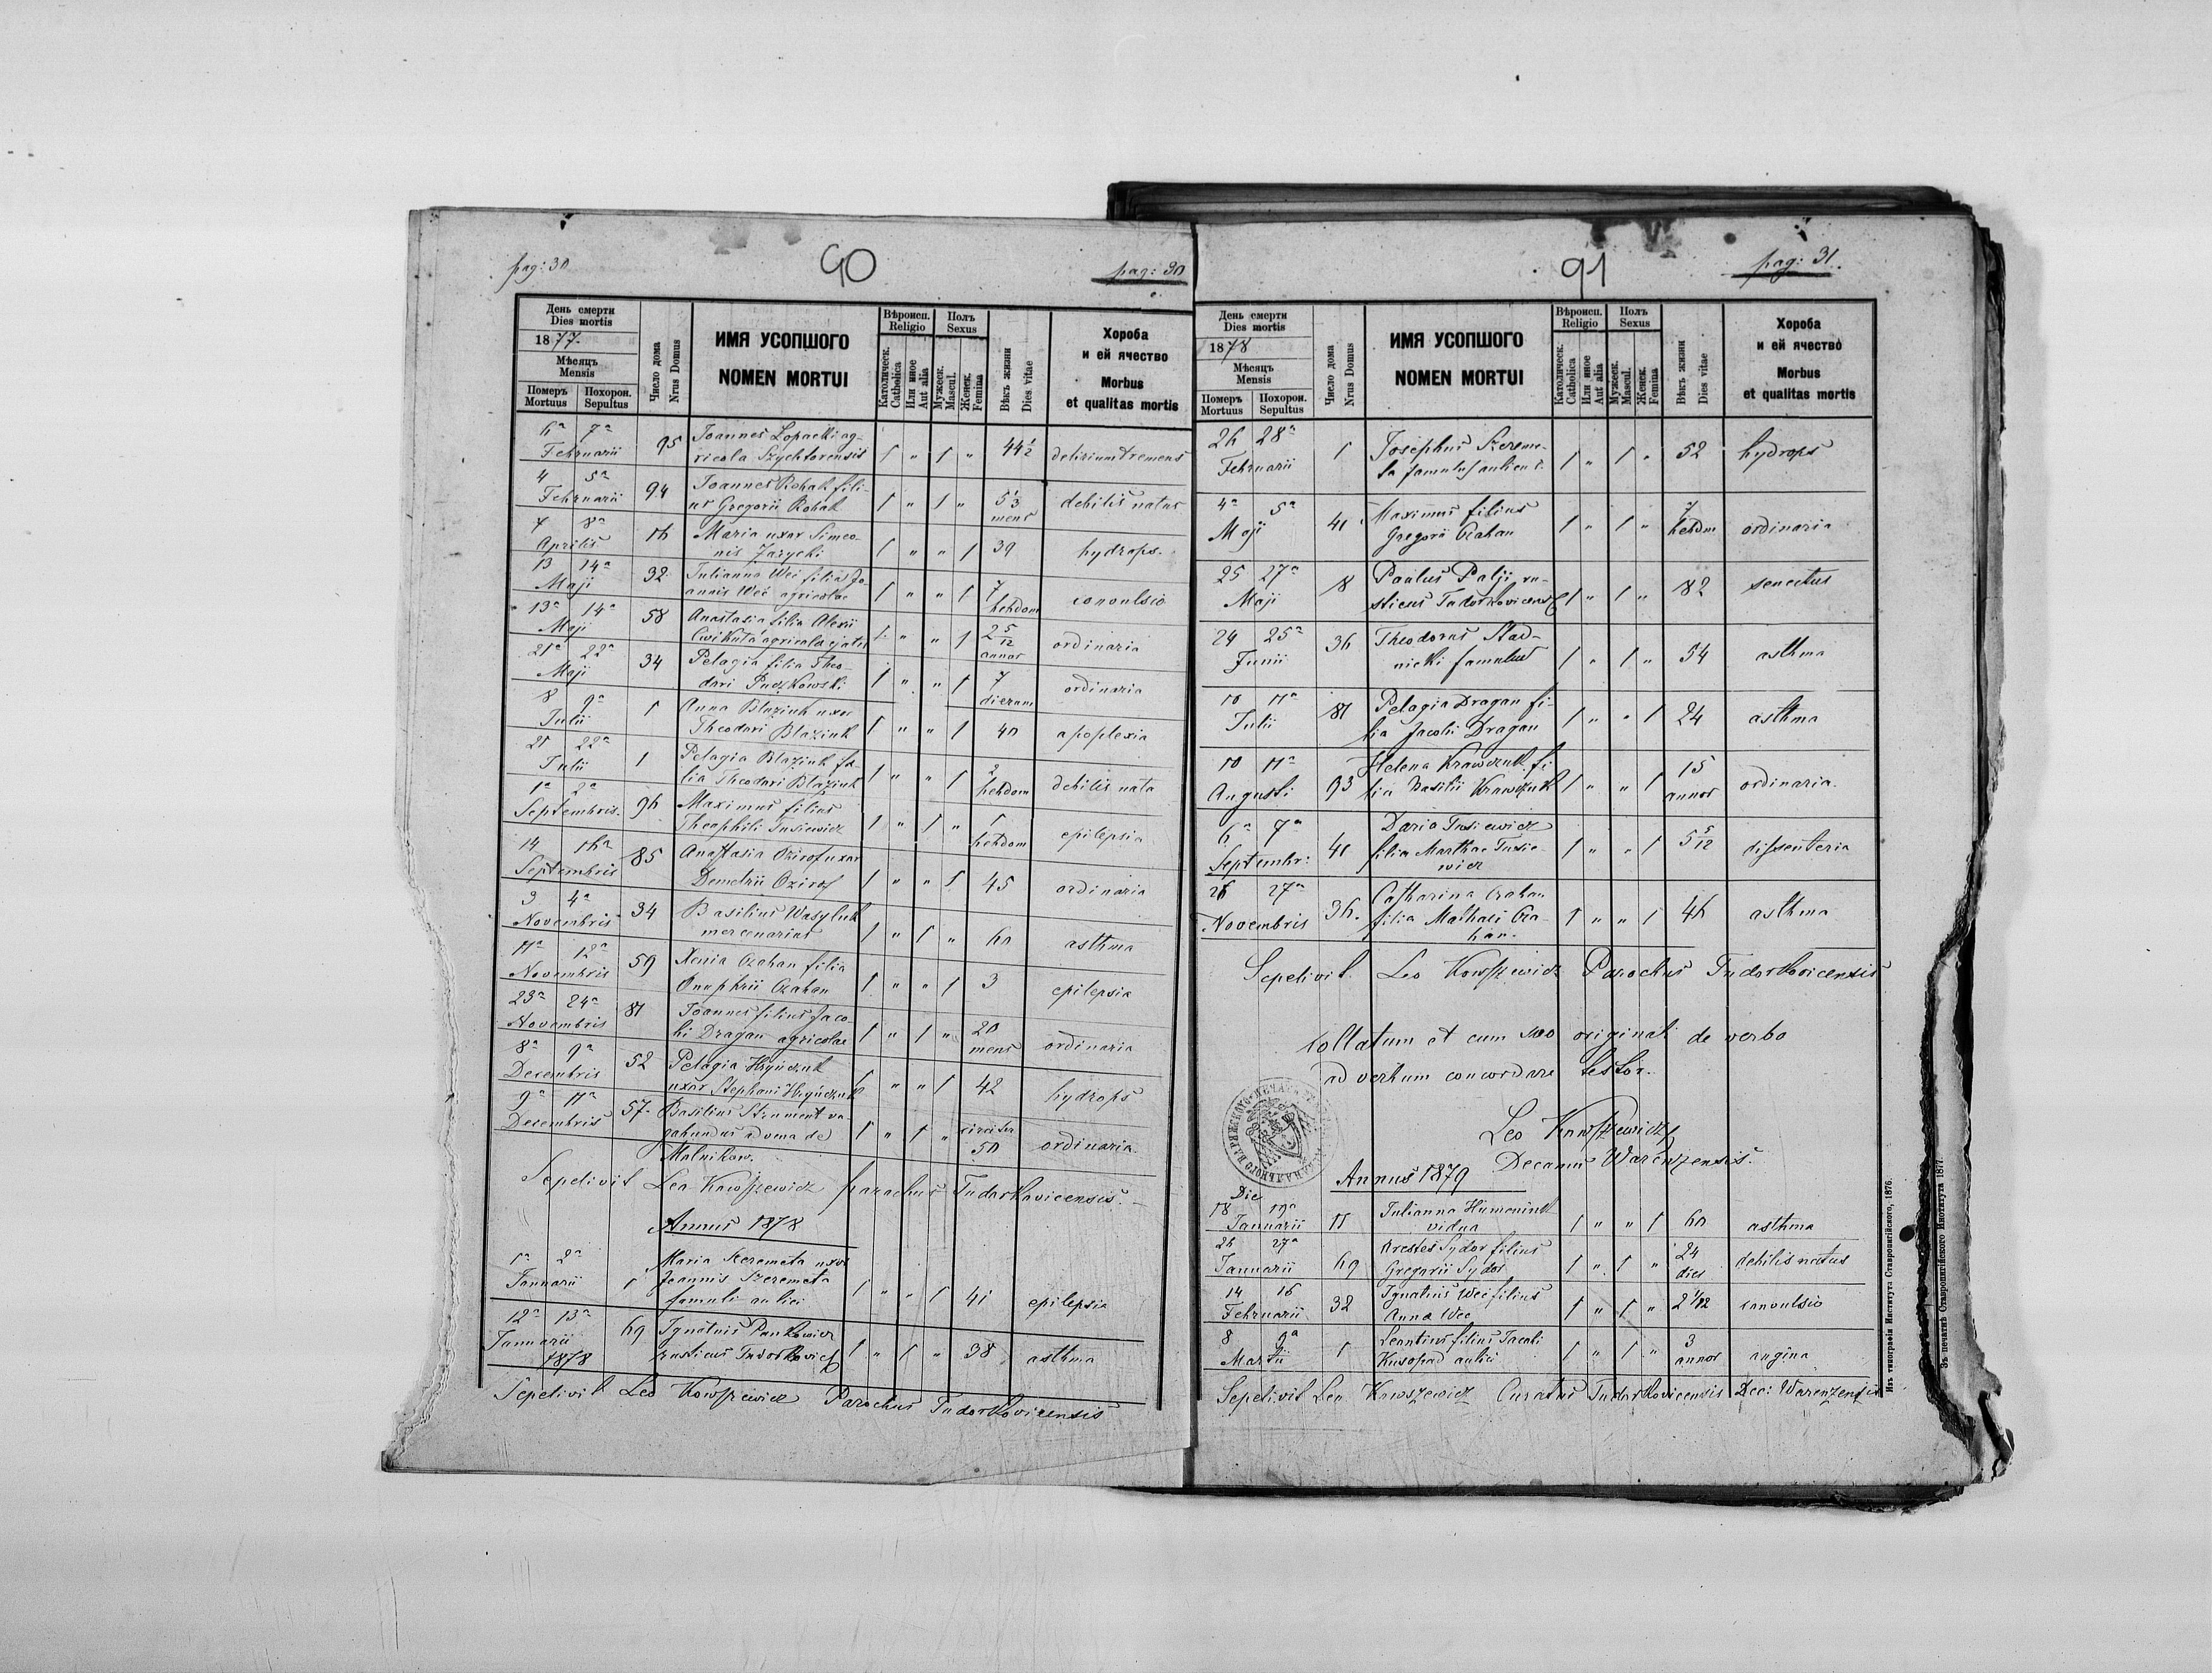 pag: 30
90
pag: 30
День смерти
Dies mortis
1877.
Мѣсяцъ
Mensis
Померъ Mortuus
Похорон. Sepultus
Число дома
Nrus Domus
ИМЯ УСОПШОГО
NOMEN MORTUI
Вѣроисп.
Religio
Католическ.
Catholica
Или иное
Aut alia
Полъ
Sexus
Мужеск.
Mascul.
Женск.
Femina
Вѣкъ жизни
Dies vitae
Хороба
и ей ячество
Morbus
et qualitas mortis
6ª 7ª Februarii 95 Joannes Lopacki ag-
ricola Szychtorensis 1 " 1 " 44½ delirium tremens
4 5ª Februarii 94 Joannes Rohak fili-
us Gregorii Rohak 1 " 1 " 5⅓ mens debilis natus
7 8ª Aprilis 16 Maria uxor Simeo-
nis Jarycki 1 " " 1 39 hydrops.
13 14ª Maji 32 Julianna Weć filia Jo-
annis Weć agricolae 1 " " 1 7 hebdom convulsio
13ª 14ª Maji 58 Anastasia filia Alexii
Cwikuta agricola ejatis 1 " " 1 2 5/12 annor ordinaria
21ª 22ª Maji 34 Pelagia filia Theo-
dori Puszkowski 1 " " 1 7 dierum ordinaria
8 9ª Julii 1 Anna Blaziuk uxor
Theodori Blaziuk 1 " " 1 40 apoplexia
21 22ª Julii 1 Pelagia Blaziuk fi-
lia Theodori Blaziuk 1 " " 1 2 hebdom debilis nata
1ª 2ª Septembris 96 Maximus filius
Theophili Tusiewicz 1 " 1 " 1 hebdom epilepsia
14 16ª Septembris 85 Anastasia Ozirof uxor
Demetrii Ozirof 1 " " 1 45 ordinaria
3 4ª Novembris 34 Basilius Wasyluk
mercenarius 1 " 1 " 60 asthma
11ª 12ª Novembris 59 Xenia Czahan filia
Onuphrii Czahan 1 " " 1 3 epilepsia
23ª 24ª Novembris 81 Joannes filius Jaco-
bi Dragan agricolae 1 " 1 " 20 mens ordinaria
8ª 9ª Decembris 52 Pelagia Hryńczuk
uxor Stephani Hryńczuk 1 " " 1 42 hydrops
9ª 11ª Decembris 57. Basilius Strument va-
gabundus advena de
Malnikow. 1 " 1 " circiter 50 ordinaria.
Sepelivit Leo Kowszewicz parochus Tudorkovicensis.
Annus 1878
1ª 2ª Januarii 1 Maria Szeremeta uxor
Joannis Szeremeta
famuli aulici 1 " " 1 41 epilepsia
12ª 13ª Januarii 1878 69 Ignatius Pankowicz
rusticus Tudorkovic 1 " 1 " 38 asthma
Sepelivit Leo Kowszewicz Parochus Tudorkovicensis
91
pag: 31.
День смерти
Dies mortis
1878
Мѣсяцъ
Mensis
Померъ Mortuus
Похорон. Sepultus
Число дома
Nrus Domus
ИМЯ УСОПШОГО
NOMEN MORTUI
Вѣроисп.
Religio
Католическ.
Catholica
Или иное
Aut alia
Полъ
Sexus
Мужеск.
Mascul.
Женск.
Femina
Вѣкъ жизни
Dies vitae
Хороба
и ей ячество
Morbus
et qualitas mortis
26 28ª Februarii 1 Josephus Szereme-
ta famulus aulicus. 1 " 1 " 52 hydrops
4ª 5ª Maji 41 Maximus filius
Gregorii Czahan 1 " 1 " 7 hebdm ordinaria
25 27ª Maji 8 Paulus Palji ru-
sticus Tudorkovicens 1 " 1 " 82 senectus
24 25ª Junii 36 Theodorus Stad-
nicki famulus 1 " 1 " 54 asthma
10 11ª Julii 81 Pelagia Dragan fi-
lia Jacobi Dragan 1 " " 1 24 asthma
10 11ª Augusti 93 Helena Krawczuk fi-
lia Basilii Krawczuk 1 " " 1 15 annor ordinaria.
6ª 7ª Septembr: 41 Daria Tusiewicz
filia Marthae Tusie-
wicz 1 " " 1 5 5/12 dissenteria
26 27ª Novembris 36. Catharina Czahan
filia Mathaei Cza-
han. 1 " " 1 46 asthma
Sepelivit Leo Kowszewicz Parochus Tudorkovicensis
Collatum et cum suo originali de verbo
ad verbum concordare testor.
Leo Kowszewicz
Decanus Warenzensis.
Annus 1879
Die
18 19ª Januarii 11 Julianna Humeniuk
vidua 1 " " 1 60 asthma
26 27ª Januarii 69 Orestes Sydor filius
Gregorii Sydor 1 " 1 " 24 dies debilis natus
14 16 Februarii 32 Ignatius Weć filius
Anna Weć 1 " 1 " 2 1/12 convulsio
8 9ª Martii 1 Leontius filius Jacobi
Kusopad aulici 1 " 1 " 3 annor angina
Sepelivit Leo Kowszewicz Curatus Tudorkovicensis Dec: Warenzensis
Изъ типографіи Института Ставропигійского, 1876.
Зъ печатнѣ Ставропигійского Института 1877.